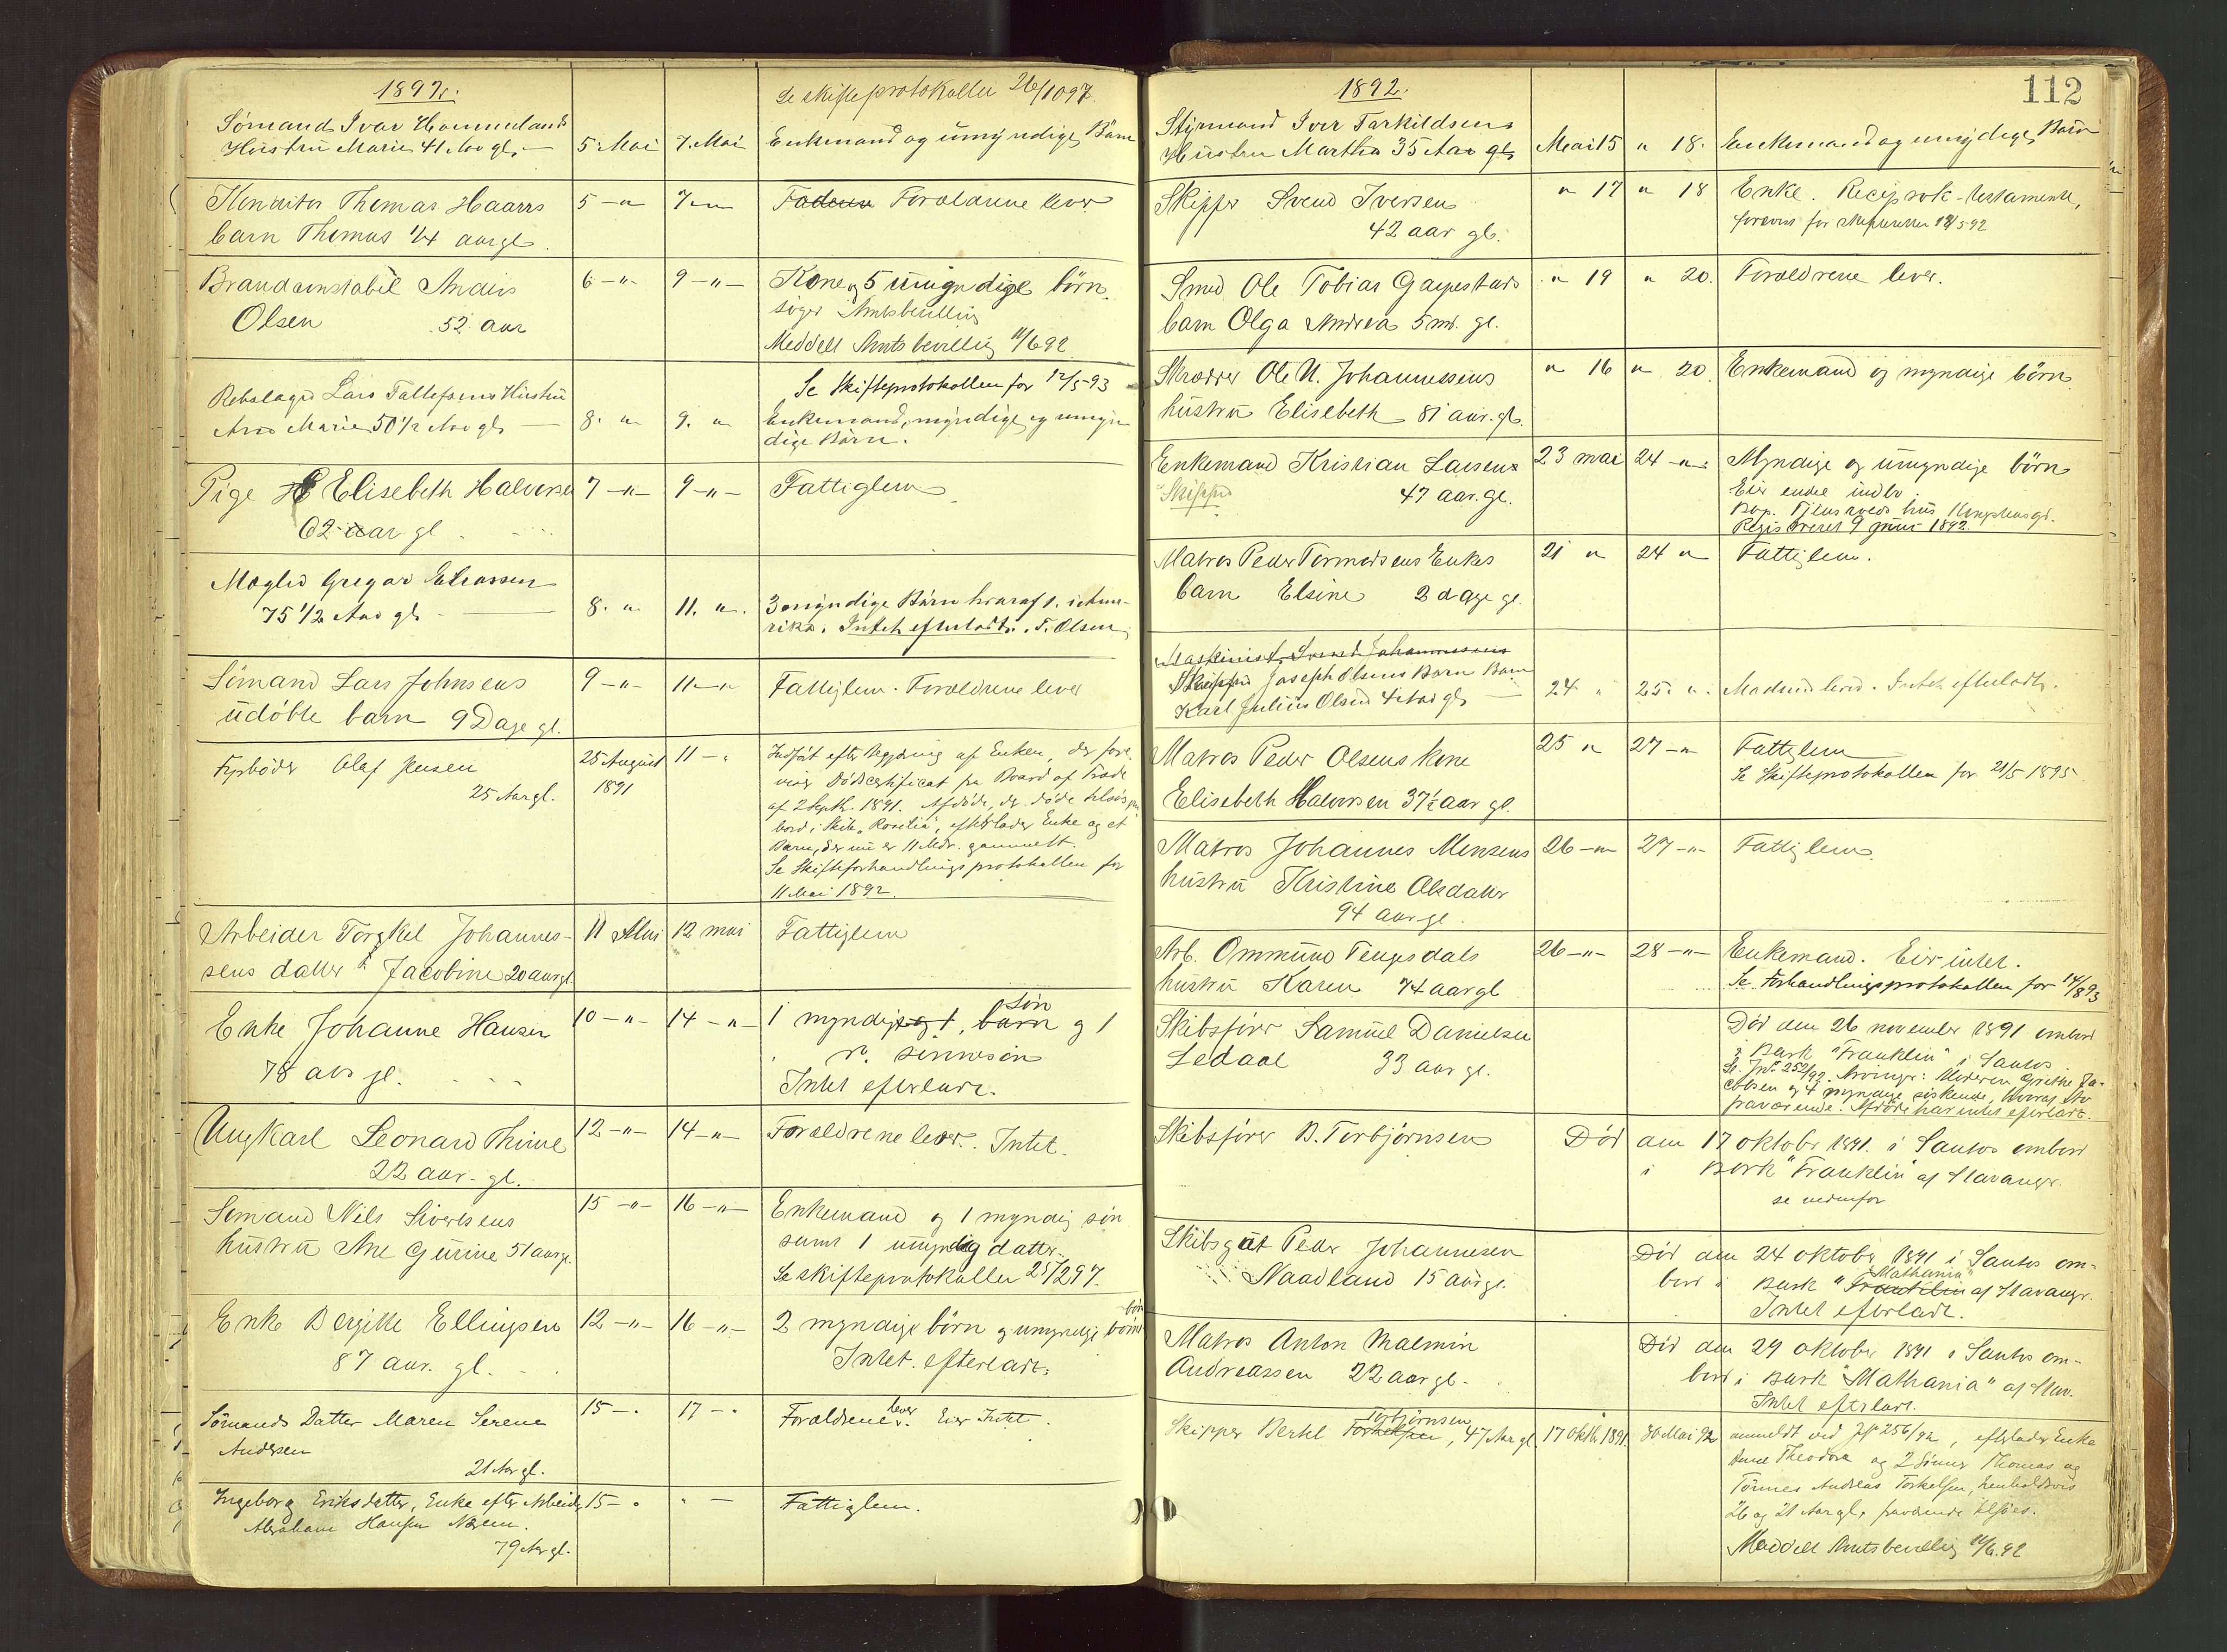 1892.
Se skifteprotokollen 26/10 97.
Sømand Ivar Hommelands
Hustru Marie 41 Aar gl. — 5. Mai 7. Mai Enkemand og umyndige Børn
Konditor Thomas Haarrs 5 —"— 7 —"— Faderen Forældrene lever
barn Thomas 1/4 aar gl.
Brandconstabel Andreas 6 —"— 9 —"— Kone og 5 umyndige børn.
Olsen 52 aar søger Amtsbevilling
Meddelt Amtsbevilling 11/6 92
Se Skifteprotokollen for 12/5 93
Rebslager Lars Tallefsens Hustru
Ane Marie 50 1/2 Aar gl. — 8. " 9. " Enkemand, myndige og umyn
dige Børn.
Pige Elisebeth Halvorsen 7 —"— 9 —"— Fattiglem
62 aar gl
Mægler Gregar Eliassen
75 1/2 Aar gl. — 8. " 11. ". 3 myndige Børn hvoraf 1. i Ame-
rika. Intet efterladt. T. Olsen
Sømand Lars Johnsens 9 —"— 11 —"— Fattiglem. Forældrene lever
udøbte barn 9 Dage gl.
Fyrbøder Olaf Jensen 25 August 11 —" Indført efter Begjæring af Enken, der fore
25 Aar gl. 1891 viser Dødscertificat fra Board of Trade
af 2 Septb. 1891. Afdøde, der døde tilsøs om
bord i Skib "Rosalia", efterlader Enke og et
Barn, der nu er 11 Mdr. gammelt.
Se Skifteforhandlingsprotokollen for
11 Mai 1892.
Arbeider Torgkel Johannes- 11 Mai 12 mai Fattiglem
sens datter Jacobine 20 aar gl.
Enke Johanne Hansen 10 —"— 14 —"— 1 myndige og 1, barn søn og 1
78 aar gl. sønnesøn
Intet efterladt.
Ungkarl Leonard Thime 12 —"— 14 —"— Forældrene lever. Intet.
22 aar gl.
Sømand Nils Siversens 15 —"— 16 —"— Enkemand og 1 myndig søn
hustru Ane Gurine 51 aar gl. samt 1 umyndig datter.
Se skifteprotokollen 25/2 97.
Enke Bergitte Ellingsen 12 —"— 16 —"— 2 myndige børn og umyndige børne børn
87 aar. gl. Intet efterladt.
Sømands Datter Maren Serene 15 —" 17 —" Forældrene lever. Eier Intet.
Andersen
21 Aar gl.
Ingeborg Eriksdatter, Enke efter Arbeider 15 —" " — Fattiglem.
Abraham Hansen
79 Aar gl.
112
1892.
Styrmand Iver Tarkildsens
Hustru Martha 35 Aar gl. Mai 15 " 18. Enkemand og umyndige Børn
Skipper Svend Iversen " 17 " 18 Enke. Reciprok testamente,
42 aar gl. forevist for skifteretten 18/5 92
Smed Ole Tobias Gaupestads " 19 " 20. Forældrene lever.
barn Olga Andrea 5 md. gl.
Skrædder Ole N. Johannessens " 16 " 20. Enkemand og myndige børn
hustru Elisebeth 81 aar. gl.
Enkemand Kristian Larsen 23 mai 24 —"— Myndige og umyndige børn
Skipper 47 aar. gl. Eier endel indbo
Registreret 9 juni 1892
Matros Peder Tormodsens Enkes 21 " 24 " Fattiglem.
barn Elsine 2 dage gl.
Maskinist Svend Johannessens
Skipper Joseph Olsens Barn Barn
Karl Julius Olsen 4 Aar gl. — 24 " 25. ". Moderen lever. Intet efterladt.
Matros Peder Olsens kone 25 " 27 —" Fattiglem
Elisebeth Halvorsen 37 1/2 aar gl. Se Skifteprotokollen for 21/5 1895
Matros Johannes Monsens 26 —"— 27 —"— Fattiglem.
hustru Kristine Olsdatter
94 aar gl.
Arb. Ommund Tengesdals 26 —"— 28 —"— Enkemand. Eier intet.
hustru Karen 74 aar gl Se Forhandlingsprotokollen for 14/8 93
Skibsfører Samuel Danielsen Død den 26 november 1891 ombord
Ledaal 33 aar gl. i Bark "Franklin" i Santos
Se Jr. 252/92. Arvinger: Moderen Grethe Ja-
cobsen og 4 myndige søskende, hvoraf
fraværende. Afdøde har intet efterladt.
Skibsfører B. Torbjørnsen Død den 17 oktober 1891. i Santos ombord
i Bark "Franklin" af Stavanger.
se nedenfor
Skibsgut Peder Johannesen Død den 24 oktober 1891 i Santos om-
Naadland 15 aar gl. bord i Bark "Franklin Mathania" af Stavanger.
Intet efterladt.
Matros Anton Malmin Død den 29 oktober 1891 i Santos om-
Andreassen 22 aar gl. bord i Bark "Mathania" af Stav.
Intet efterladt.
Skipper Bertel Torkelsen Torbjørnsen, 47 Aar gl. 17 Oktbr 1891. 30 Mai 92 anmeldt ved Jr 256/92, efterlader Enke
Anne Theodora og 2 Sønner Thomas og
Tønnes Andreas Torkelsen, henholdsvis
26 og 21 Aar gl., fraværende tilsøes.
Meddelt Amtsbevilling 14/6.92